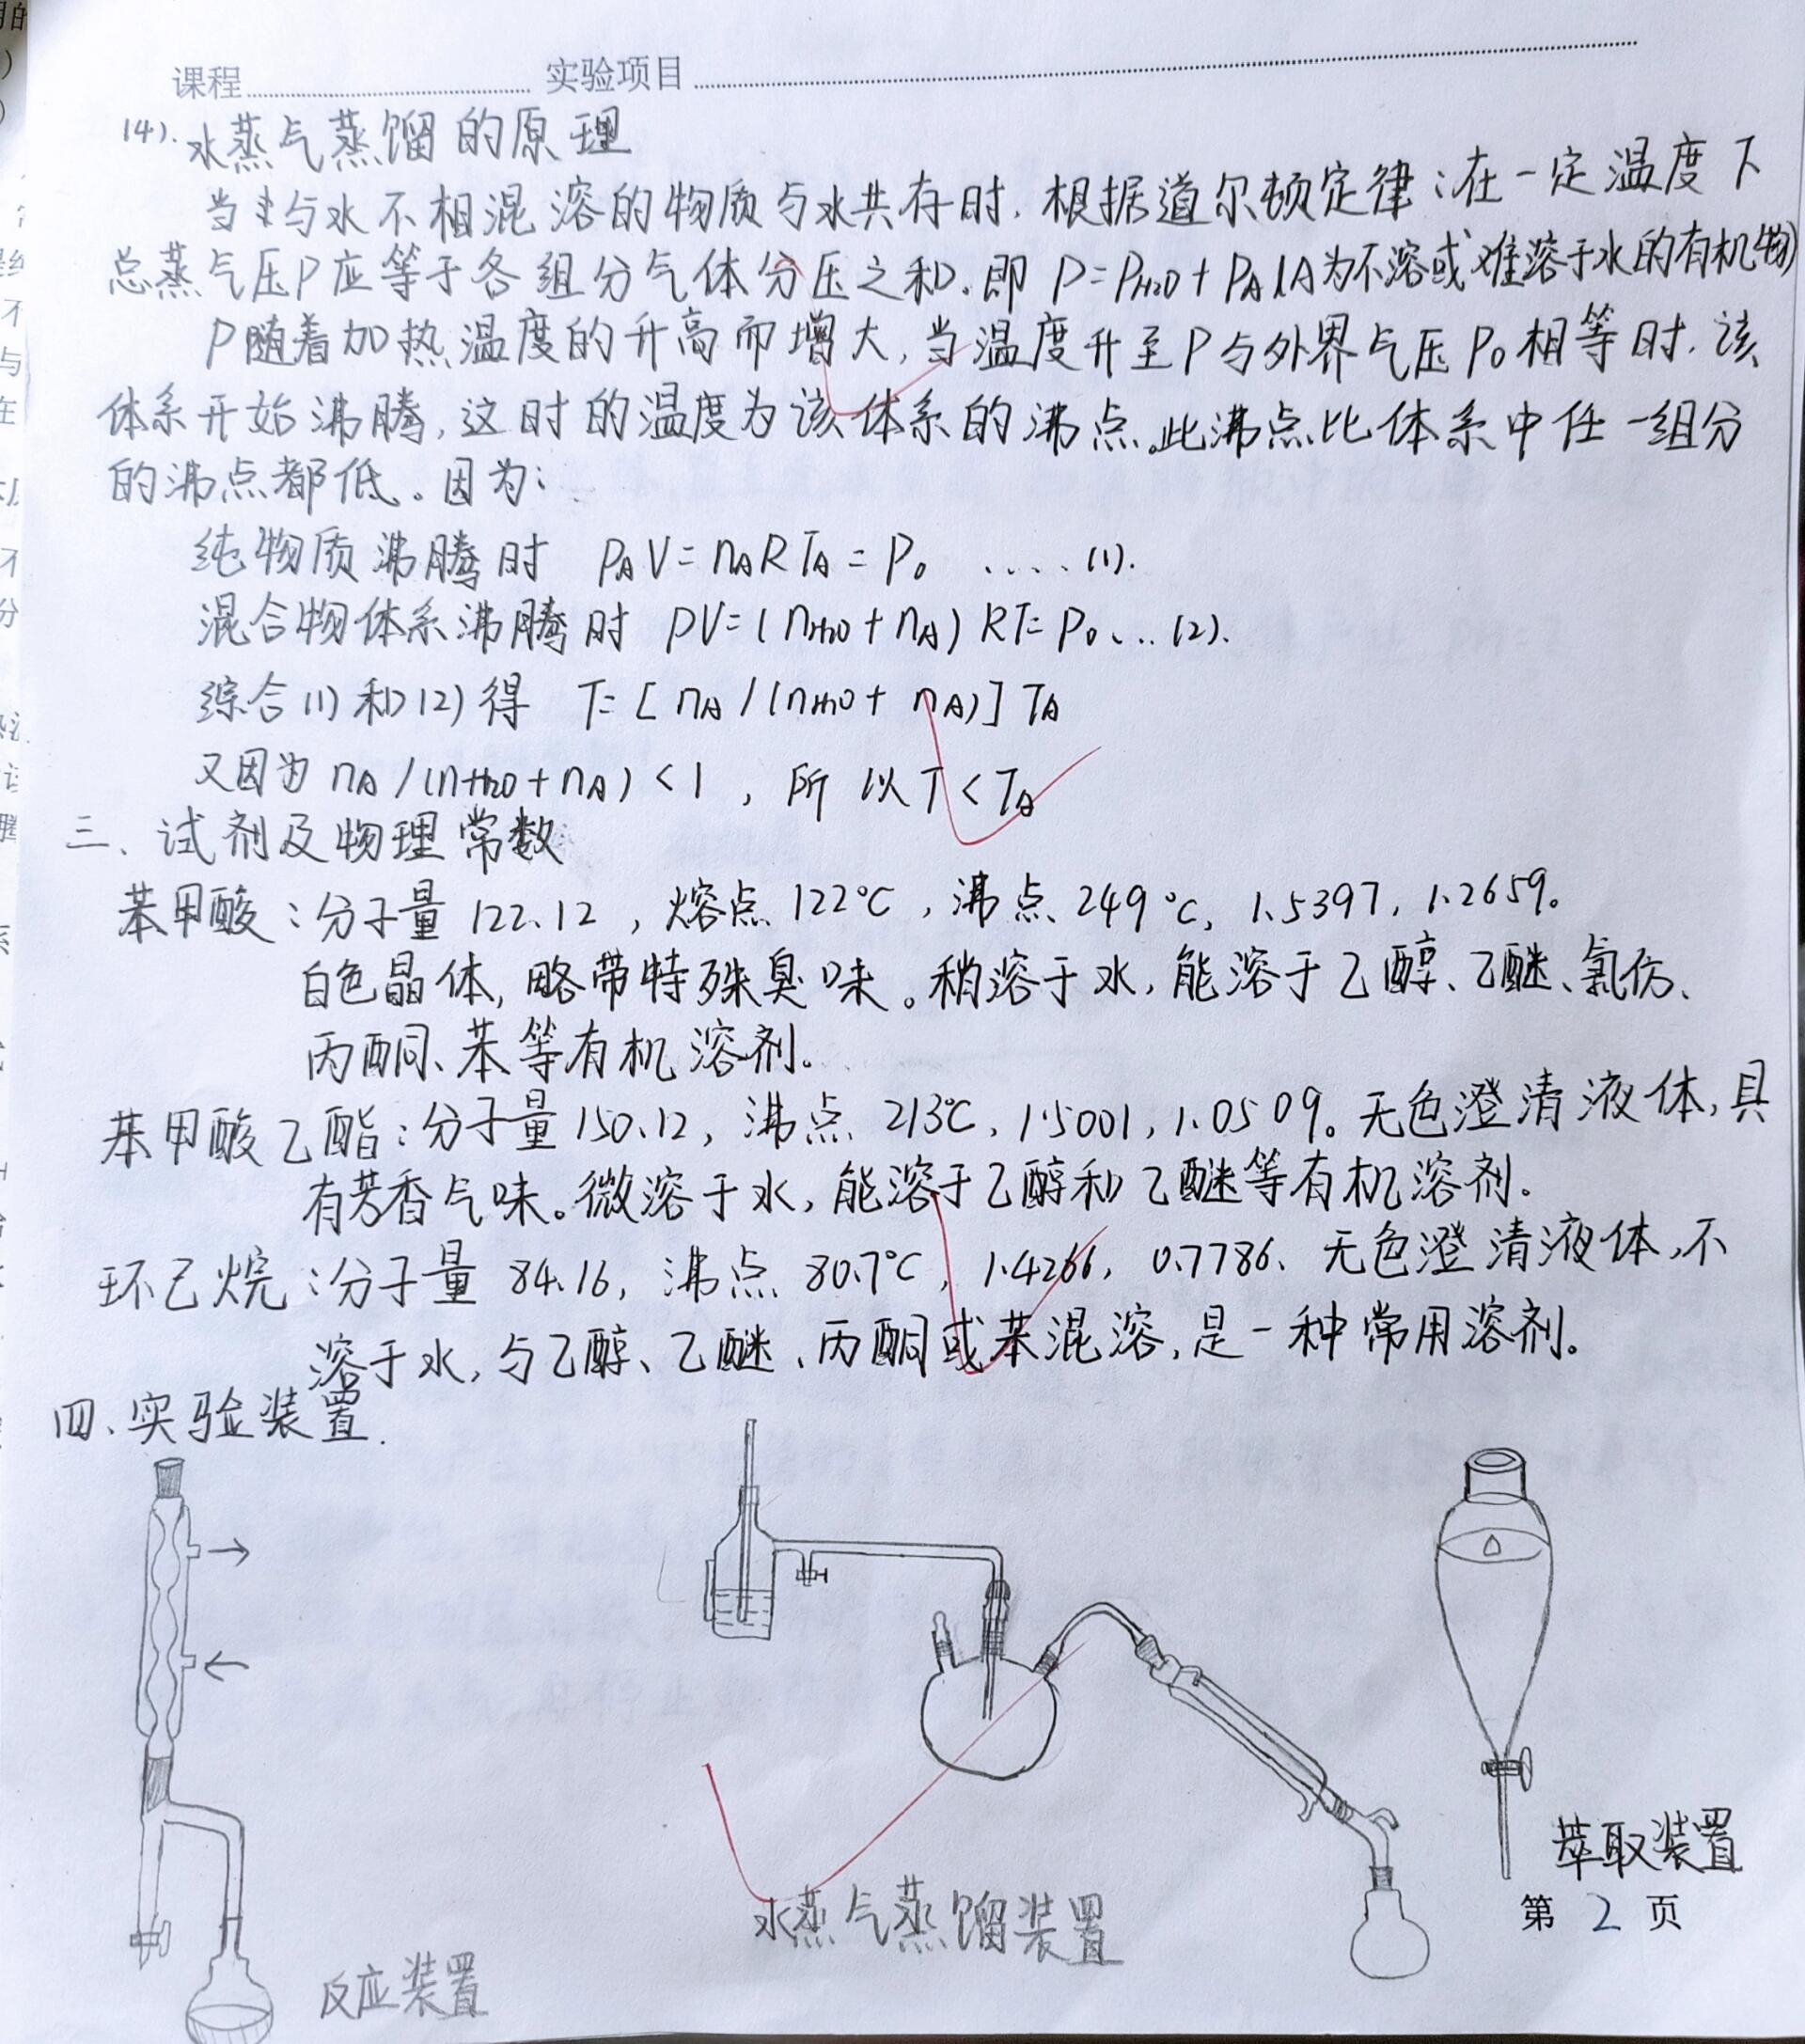 课程 实验项目
(4). 水蒸气蒸馏的原理
当与水不相混溶的物质与水共存时. 根据道尔顿定律:在一定温度下
总蒸气压P应等于各组分气体分压之和.即 P=PH2O+PA(A为不溶或难溶于水的有机物)
P随着加热温度的升高而增大,当温度升至P与外界气压P0相等时.该
体系开始沸腾,这时的温度为该体系的沸点.此沸点比体系中任一组分
的沸点都低。因为:
纯物质沸腾时 PAV=nARTA=P0 ....(1).
混合物体系沸腾时 PV=(nH2O+nA)RT=P0...(2).
综合(1)和(2)得 T=[nA/(nH2O+nA)]TA
又因为nA/(nH2O+nA)<1,所以T<TA
三、试剂及物理常数
苯甲酸:分子量122.12,熔点122℃,沸点249℃,1.5397,1.2659。
白色晶体,略带特殊臭味。稍溶于水,能溶于乙醇、乙醚、氯仿、
丙酮、苯等有机溶剂.
苯甲酸乙酯:分子量150.12,沸点213℃,1.5001,1.0509。无色澄清液体,具
有芳香气味。微溶于水,能溶于乙醇和乙醚等有机溶剂.
环己烷:分子量84.16,沸点80.7℃,1.4266,0.7786、无色澄清液体,不
溶于水,与乙醇、乙醚、丙酮或苯混溶,是一种常用溶剂。
四、实验装置.
反应装置
水蒸气蒸馏装置
萃取装置
第 2 页